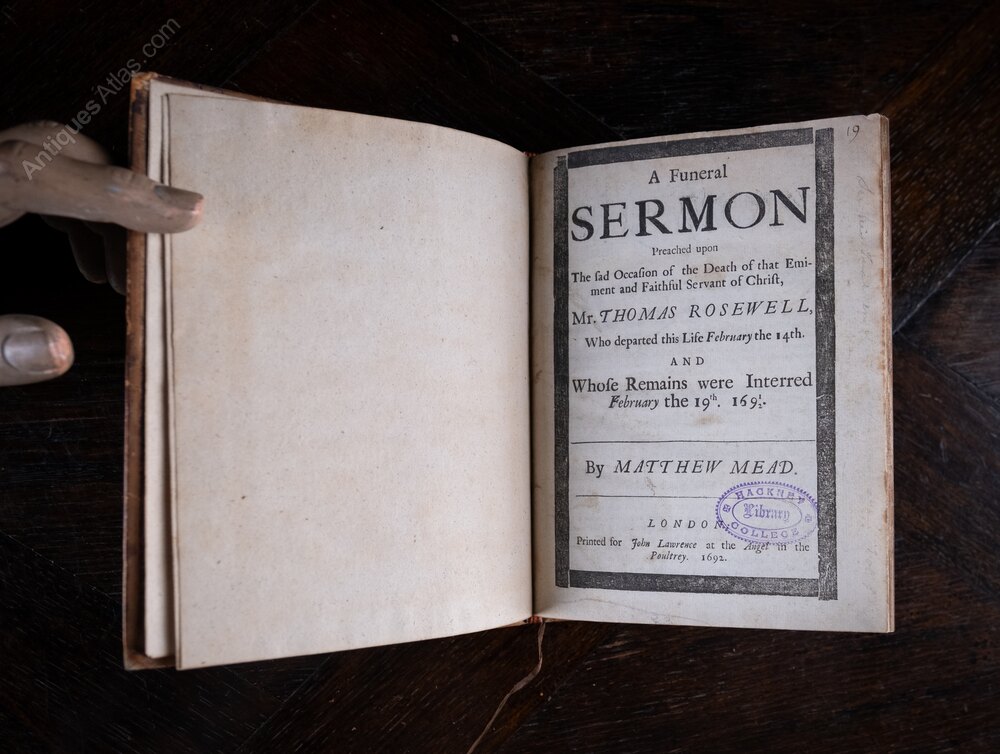 Antiques Atlas.com
19
A Funeral
SERMON
Preached upon
The ſad Occaſion of the Death of that Emi-
ment and Faithful Servant of Chriſt,
Mr. THOMAS ROSEWELL,
Who departed this Life February the 14th.
AND
Whoſe Remains were Interred
February the 19th. 169½.
By MATTHEW MEAD.
HACKNEY
Library
COLLEGE
LONDON,
Printed for John Lawrence at the Angel in the
Poultrey. 1692.